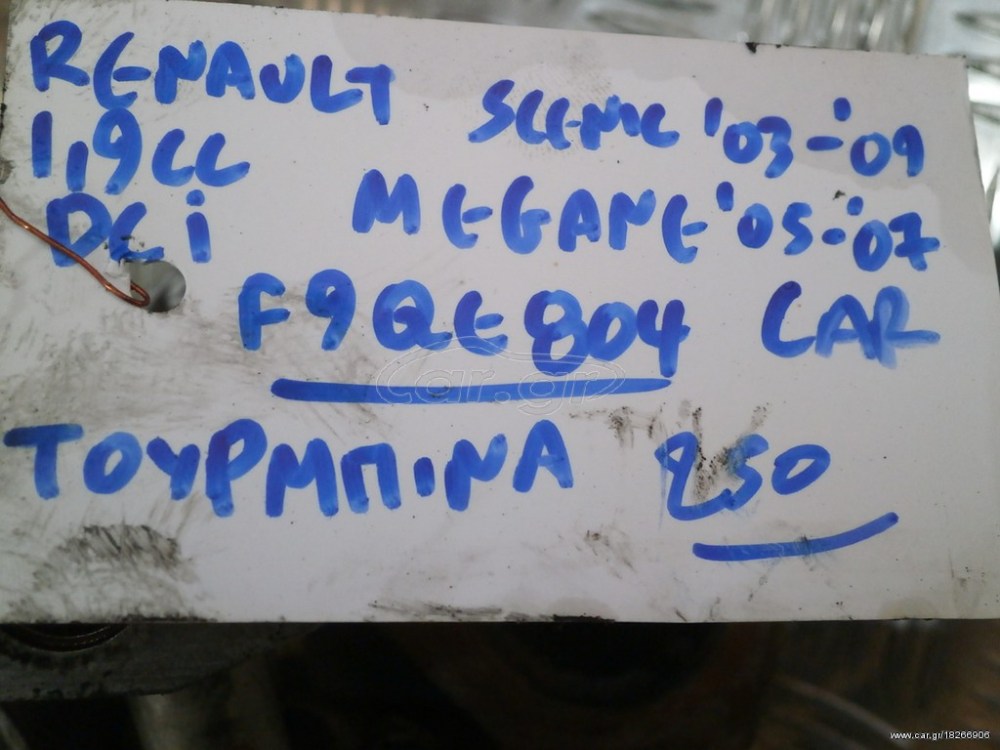 RENAULT SCENIC '03-'09
1,9CC
DCi MEGANE '05-'07
F9QE804 CAR
car.gr
ΤΟΥΡΜΠΙΝΑ 250
www.car.gr/18266906